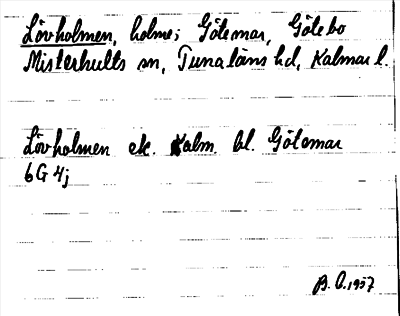 Lövholmen, holme; Götemar, Götebo
Misterhults sn, Tunaläns hd, Kalmar l.
Lövholmen ek. Kalm bl. Götemar
6G 4j
B. O. 1957